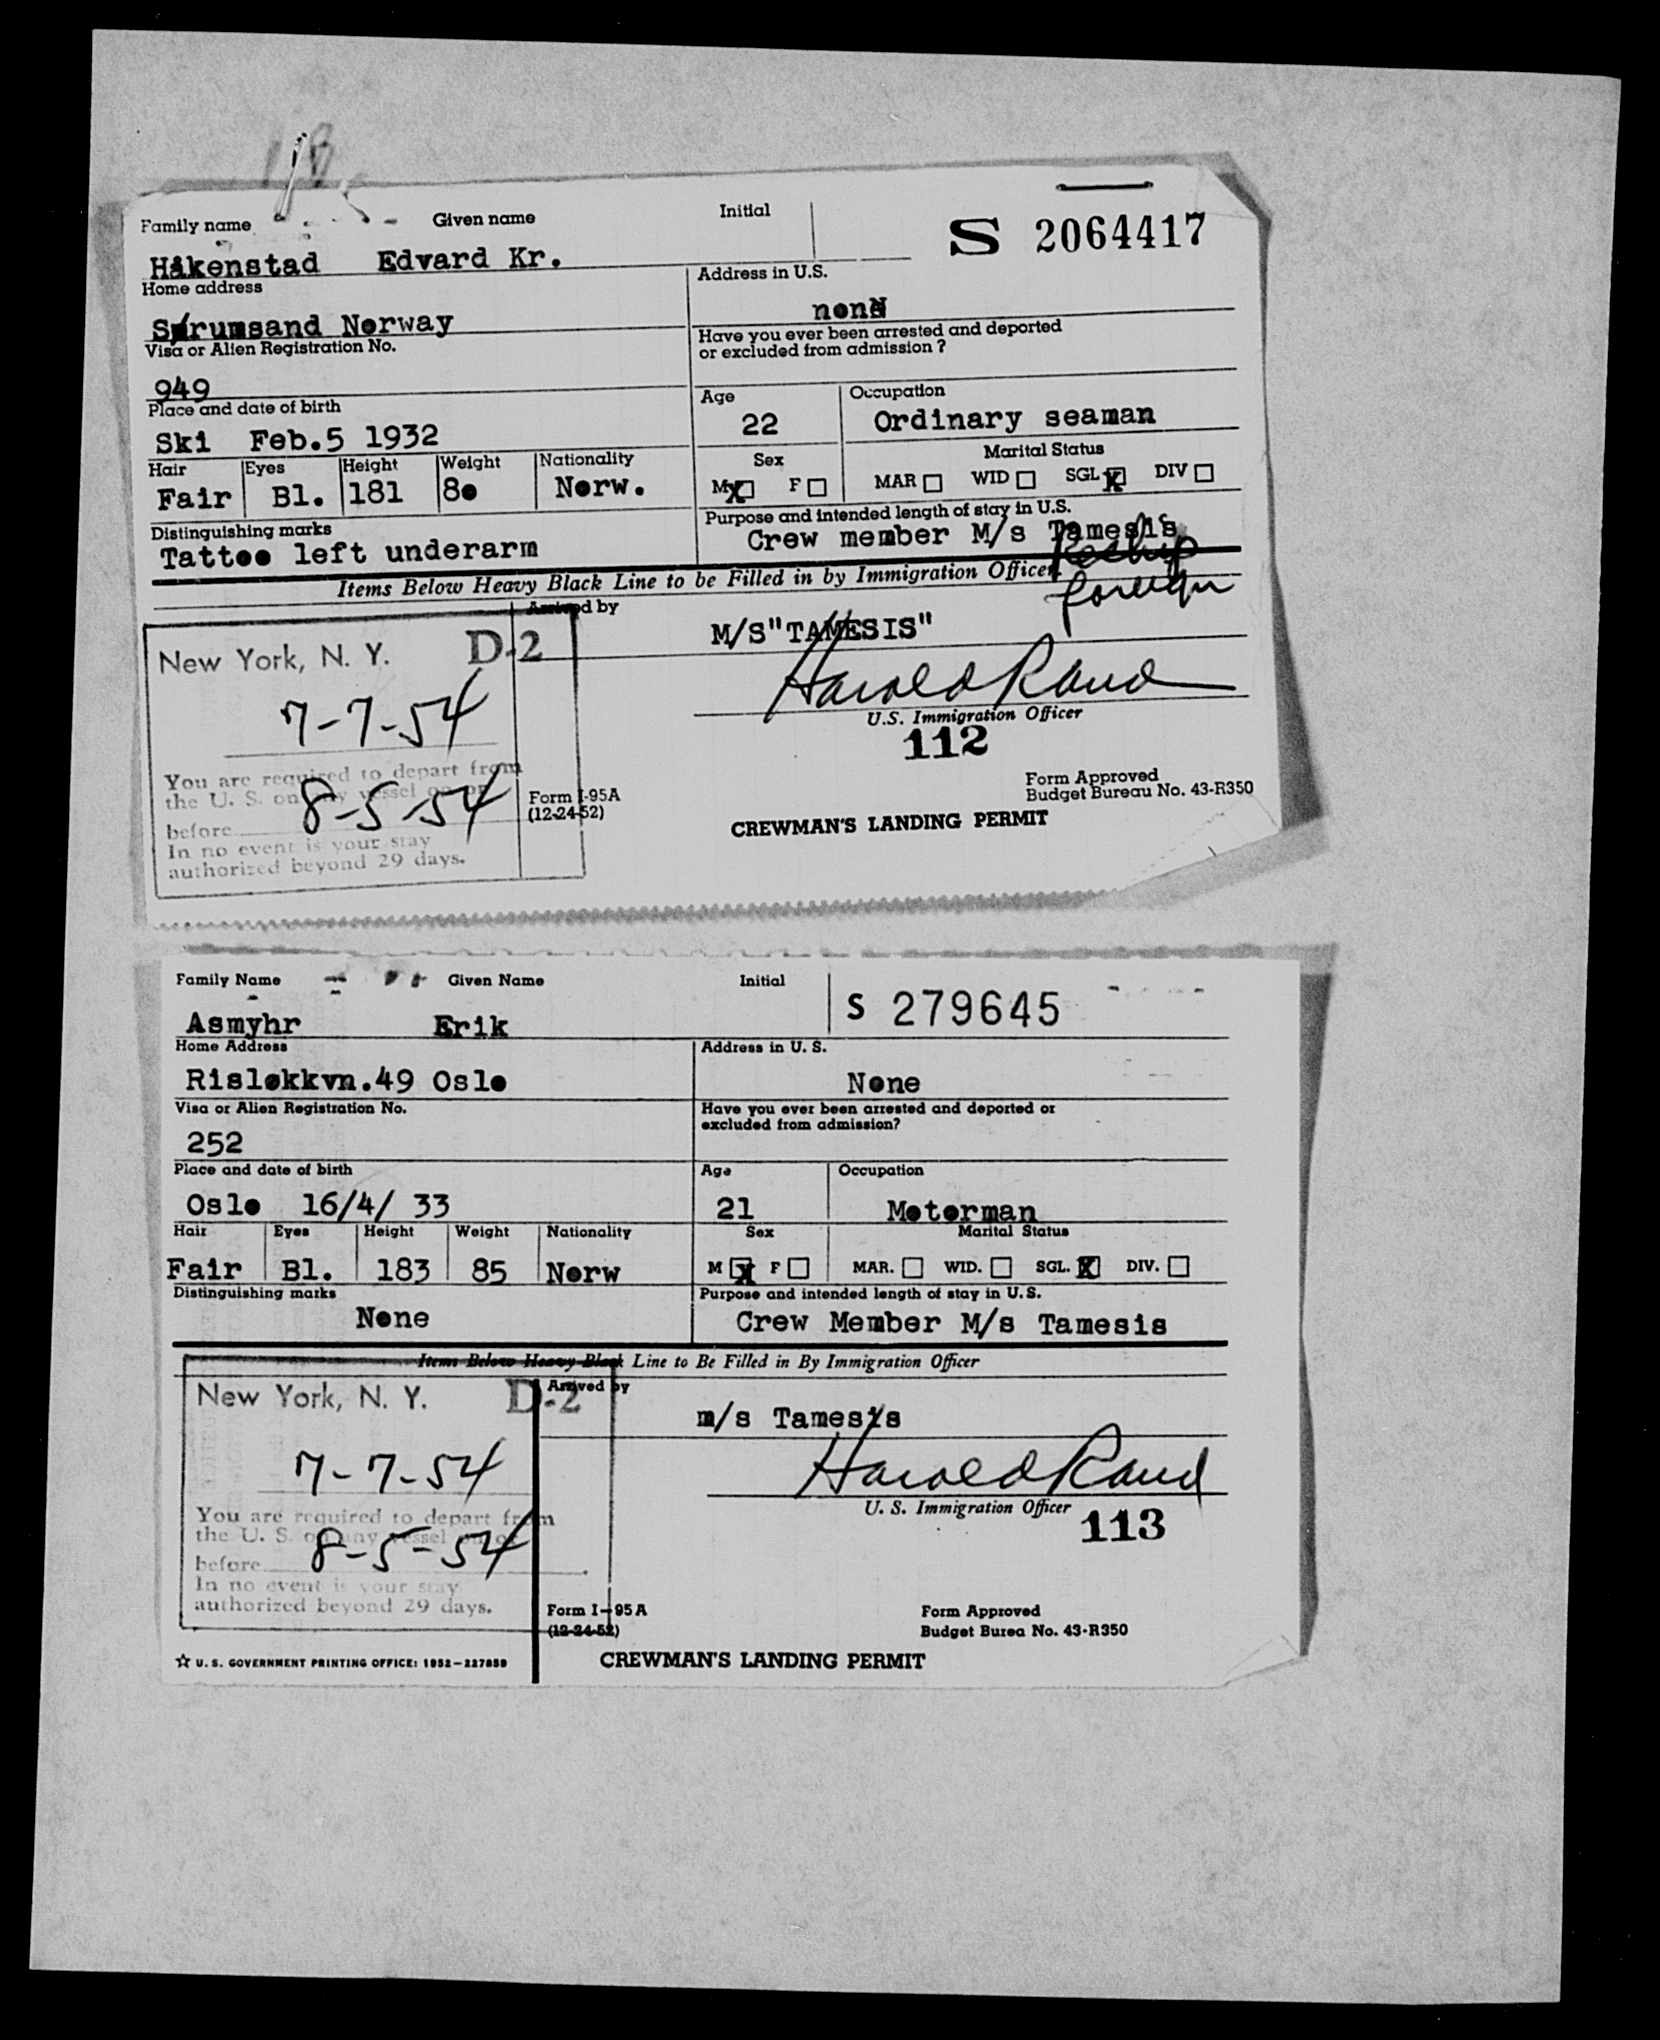 Family name Given name Initial
S 2064417
Håkenstad Edvard Kr.
Home address Address in U.S.
Sørumsand Norway none
Visa or Alien Registration No. Have you ever been arrested and deported
or excluded from admission?
949
Place and date of birth Age Occupation
Ski Feb.5 1932 22 Ordinary seaman
Hair Eyes Height Weight Nationality Sex Marital Status
Fair Bl. 181 80 Norw. M X F MAR WID SGL X DIV
Distinguishing marks Purpose and intended length of stay in U.S.
Tattoo left underarm Crew member M/s Tamesis
Reship
Items Below Heavy Black Line to be Filled in by Immigration Officer
foreign
Arrived by
New York, N. Y. D-2 M/S"TAMESIS"
7-7-54 Harold Rand
U.S. Immigration Officer
112
You are required to depart from
the U. S. on any vessel on or
before 8-5-54
In no event is your stay
authorized beyond 29 days.
Form I-95A
(12-24-52)
Form Approved
Budget Bureau No. 43-R350
CREWMAN'S LANDING PERMIT
Family Name Given Name Initial
S 279645
Asmyhr Erik
Home Address Address in U. S.
Risløkkvn.49 Oslo None
Visa or Alien Registration No. Have you ever been arrested and deported or
excluded from admission?
252
Place and date of birth Age Occupation
Oslo 16/4/ 33 21 Motorman
Hair Eyes Height Weight Nationality Sex Marital Status
Fair Bl. 183 85 Norw M X F MAR. WID. SGL. X DIV.
Distinguishing marks Purpose and intended length of stay in U.S.
None Crew Member M/s Tamesis
Items Below Heavy Black Line to Be Filled in By Immigration Officer
Arrived by
New York, N. Y. D-2 m/s Tamesis
7-7-54 Harold Rand
U. S. Immigration Officer
113
You are required to depart from
the U. S. on any vessel on or
before 8-5-54
In no event is your stay
authorized beyond 29 days.
Form I-95A
(12-24-52)
Form Approved
Budget Burea No. 43-R350
☆ U. S. GOVERNMENT PRINTING OFFICE: 1952—227859
CREWMAN'S LANDING PERMIT